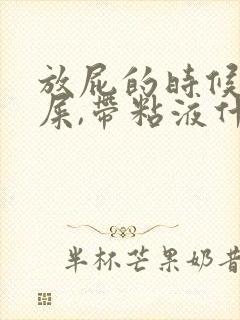 放屁的时候
屎,带粘液什
半杯芒果奶昔